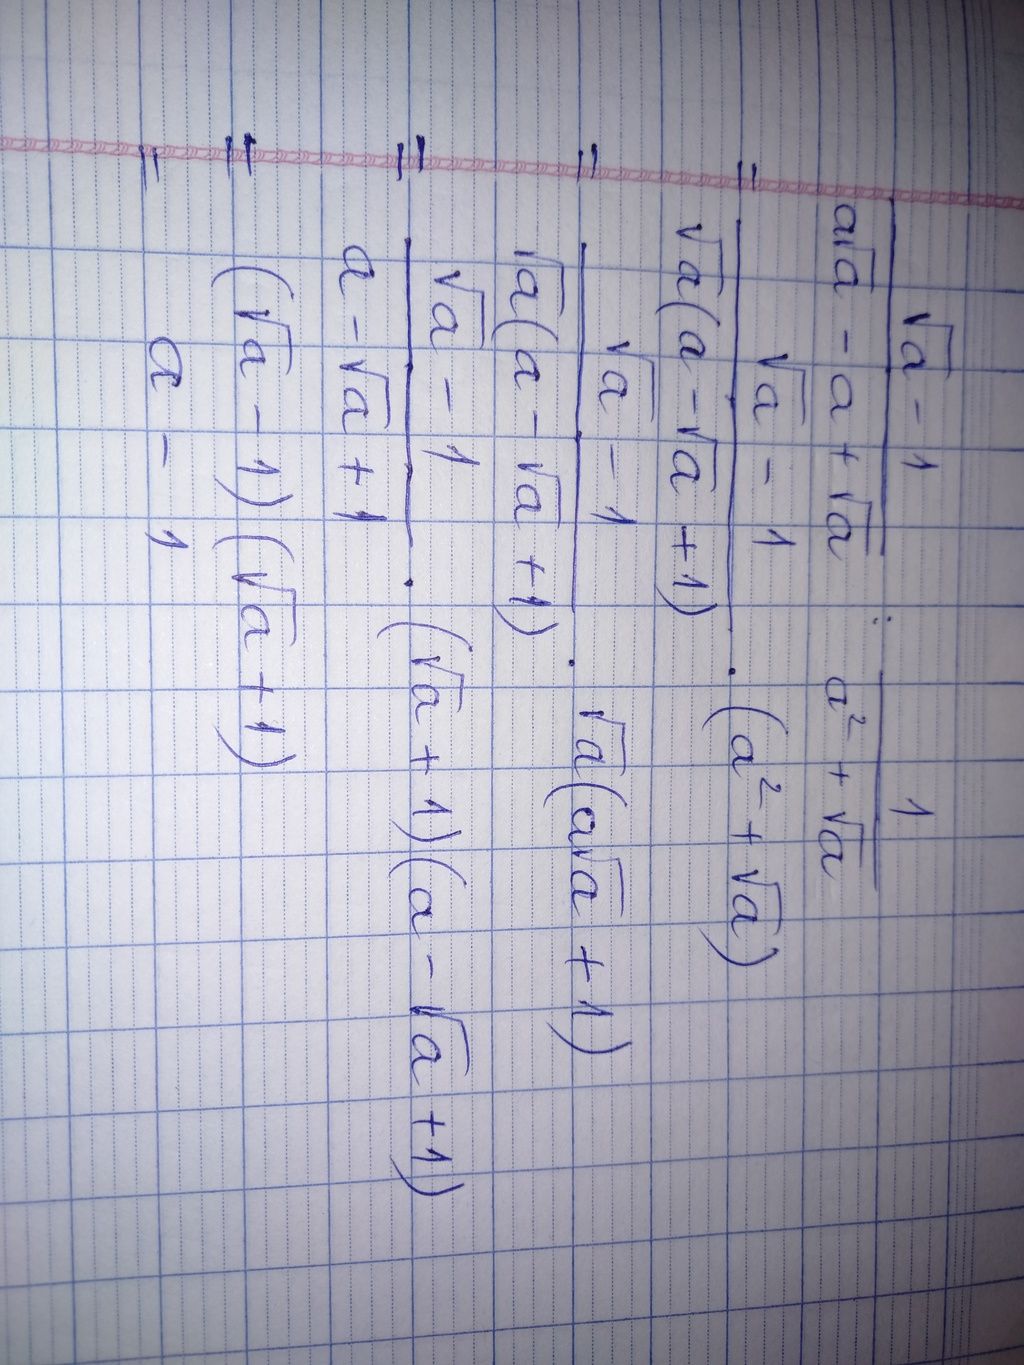 (√a - 1)/(a√a - a + √a) : 1/(a² + √a)
= (√a - 1)/(√a(a - √a + 1)) · (a² + √a)
= (√a - 1)/(√a(a - √a + 1)) · √a(a√a + 1)
= (√a - 1)/(a - √a + 1) · (√a + 1)(a - √a + 1)
= (√a - 1)(√a + 1)
= a - 1